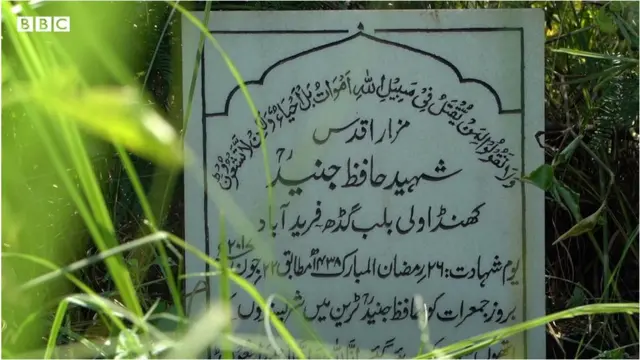 BBC
وَلَا تَقُولُوا لِمَنْ يُقْتَلُ فِي سَبِيلِ اللَّهِ أَمْوَاتٌ بَلْ أَحْيَاءٌ وَلَكِنْ لَا تَشْعُرُونَ
مزار اقدس
شہید حافظ جنیدؒ
کھنڈاولی بلب گڈھ فرید آباد
یوم شہادت: ۲۶ رمضان المبارک ۱۴۳۸ھ مطابق ۲۲ جون ۲۰۱۷
بروز جمعرات کو حافظ جنیدؒ ٹرین میں